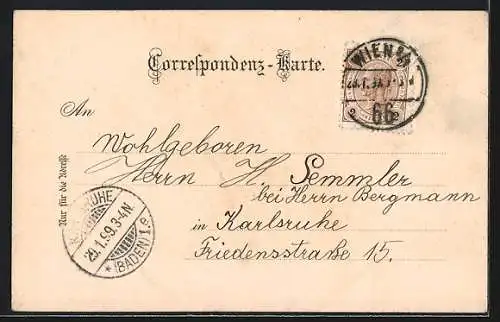 Correspondenz-Karte.
WIEN
66
2 2
An
Wohlgeboren
Herrn H. Semmler
bei Herrn Bergmann
in Karlsruhe
Friedensstraße 15.
Nur für die Adresse
KARLSRUHE
29.1.99.3-4N.
* (BADEN) 1.e